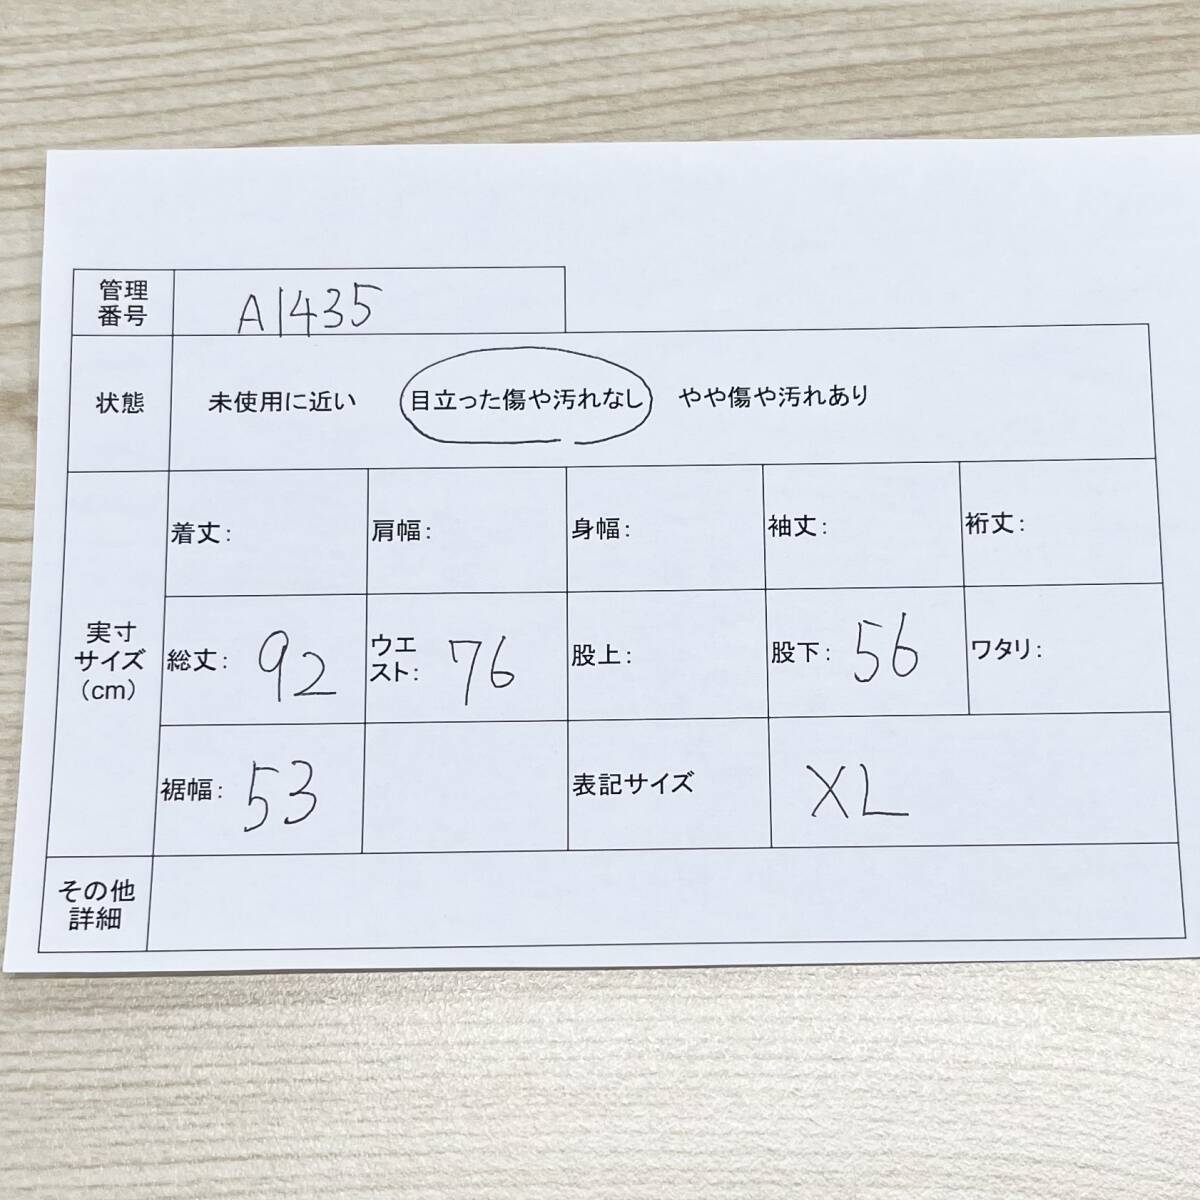 管理
番号
A1435
状態
未使用に近い 目立った傷や汚れなし やや傷や汚れあり
実寸
サイズ
（cm）
着丈： 肩幅： 身幅： 袖丈： 裄丈：
総丈： 92
ウエ
スト： 76
股上： 股下： 56 ワタリ：
裾幅： 53 表記サイズ XL
その他
詳細